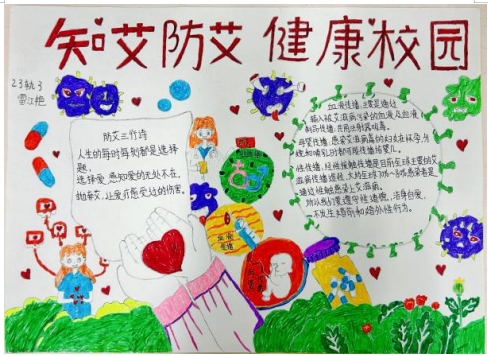 知艾防艾 健康校园
23轨3
雷江艳
防艾三行诗
人生的每时每刻都是选择
题,
选择爱,感知爱的无处不在,
抛弃艾,让爱不感受过的伤害。
血液传播,主要是通过
输入被艾滋病污染的血液及血液
制品传播,共用注射器吸毒。
母婴传播,感染艾滋病毒的妇女在怀孕,分
娩和哺乳时都可能传播给婴儿。
性传播,经性接触传播是目前全球主要的艾
滋病传播途径,大约全球
通过性接触感染上艾滋病。
所以我们要遵守性道德,洁身自爱,
一不发生婚前和婚外性行为。
血液
传播
母婴